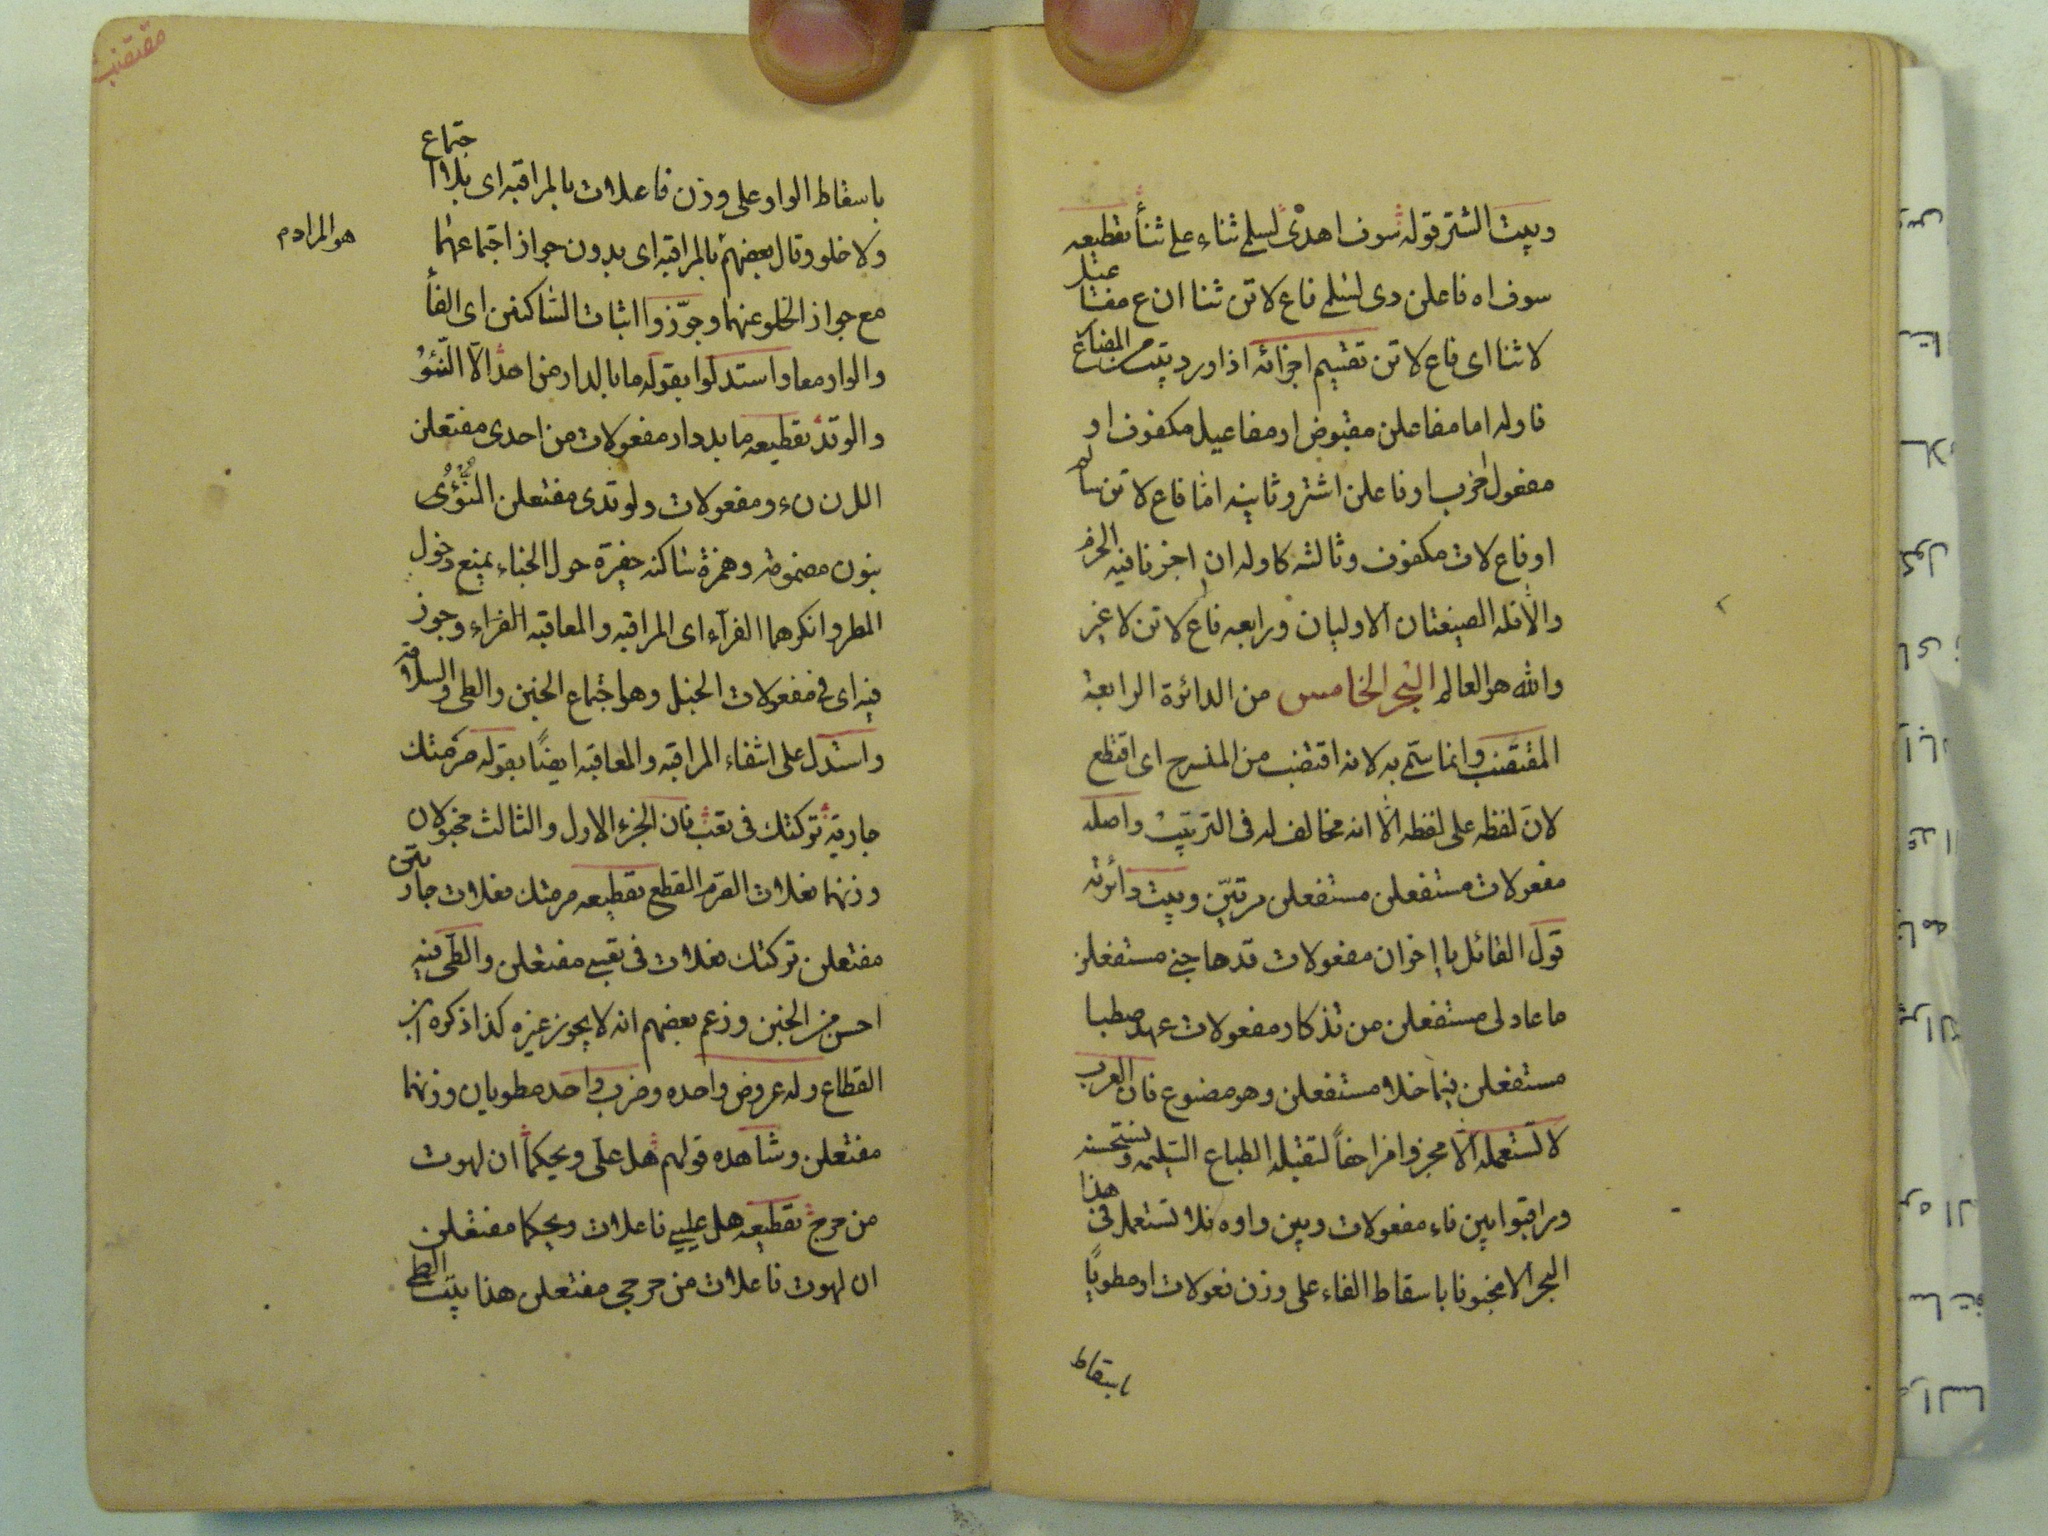 وبيت الشتر قوله سوف اهدى لسلمى ثناء على ثنأ تقطيعه
سوف اه فاعلن دى لسلمى فاع لاتن ثنا ان ع مفاعيل
لا ثنا اى فاع لاتن تقسيم اجزائه اذا ورد بيت من المضارع
فاوله اما مفاعلن مقبوض او مفاعيل مكفوف او
مفعول اخرب او فاعلن اشتر وثانيه امّا فاع لاتن سالم
او فاع لات مكفوف وثالثه كاوله ان اجزنا فيه الخرم
والّا فله الصيغتان الاوليان ورابعه فاع لاتن لا غير
والله هو العالم البحر الخامس من الدائرة الرابعة
المقتضب وانما سمّى به لانه اقتضب من المنسرح اى اقتطع
لانّ لفظه على لفظه الّا انه مخالف له فى الترتيب واصله
مفعولات مستفعلن مستفعلن مرتين وبيت دائرته
قول القائل يا إخوان مفعولات قد هاجنى مستفعلن
ما عاد لى مستفعلن من تذكار مفعولات عهد صطبا
مستفعلن فيما خلا مستفعلن وهو مصنوع فان العرب
لا تستعمله الّا مجزوا مزاحفاً لتقبله الطباع السليمه وتستحسنه
وراقبوا بين فاء مفعولات وبين واوه فلا تستعمل فى هذا
البحر الا مخبونا باسقاط الفاء على وزن فعولات او مطويًا
باسقاط
مقتضب
باسقاط الواو على وزن فاعلات بالمراقبه اى بلا اجتماع
ولا خلو وقال بعضهم بالمراقبه اى بدون جواز اجتماعهما
هو المراد م
مع جواز الخلو عنهما وجوّزوا اثبات الساكنين اى الفأ
والواو معا واستدلوا بقوله ما بالدار من احد الّا النّؤىُ
والوتد تقطيعه ما بددار مفعولات من احدى مفتعلن
اللن نء و مفعولات ولوتدى مفتعلن النُّؤْىُ
بنون مضمومة وهمزة ساكنه حفرة حول الخباء يمنع دخول
المطر وانكرهما الفرآء اى المراقبه والمعاقبه الفراء وجوز
فيه اى فى مفعولات الخبل وهو اجتماع الخبن والطى والسلامة
واستدل على انتفاء المراقبه والمعاقبه ايضًا بقوله صرمتك
جارية تركتك فى تعب فان الجزء الاول والثالث مخبولان
وزنهما فعلات الصرم القطع تقطيعه صرمتك فعلات جاريتن
مفتعلن تركتك فعلات فى تعبى مفتعلن والطى فيه
احسن من الخبن وزعم بعضهم انه لا يجوز غيره كذا ذكره ابن
القطاع وله عروض واحده وضرب واحد مطويان وزنهما
مفتعلن وشاهده قولهم هل على ويحكما ان لهوت
من حرج تقطيعه هل عليى فاعلات ويحكما مفتعلن
ان لهوت فاعلات من حرجى مفتعلن هذا بيت الطى